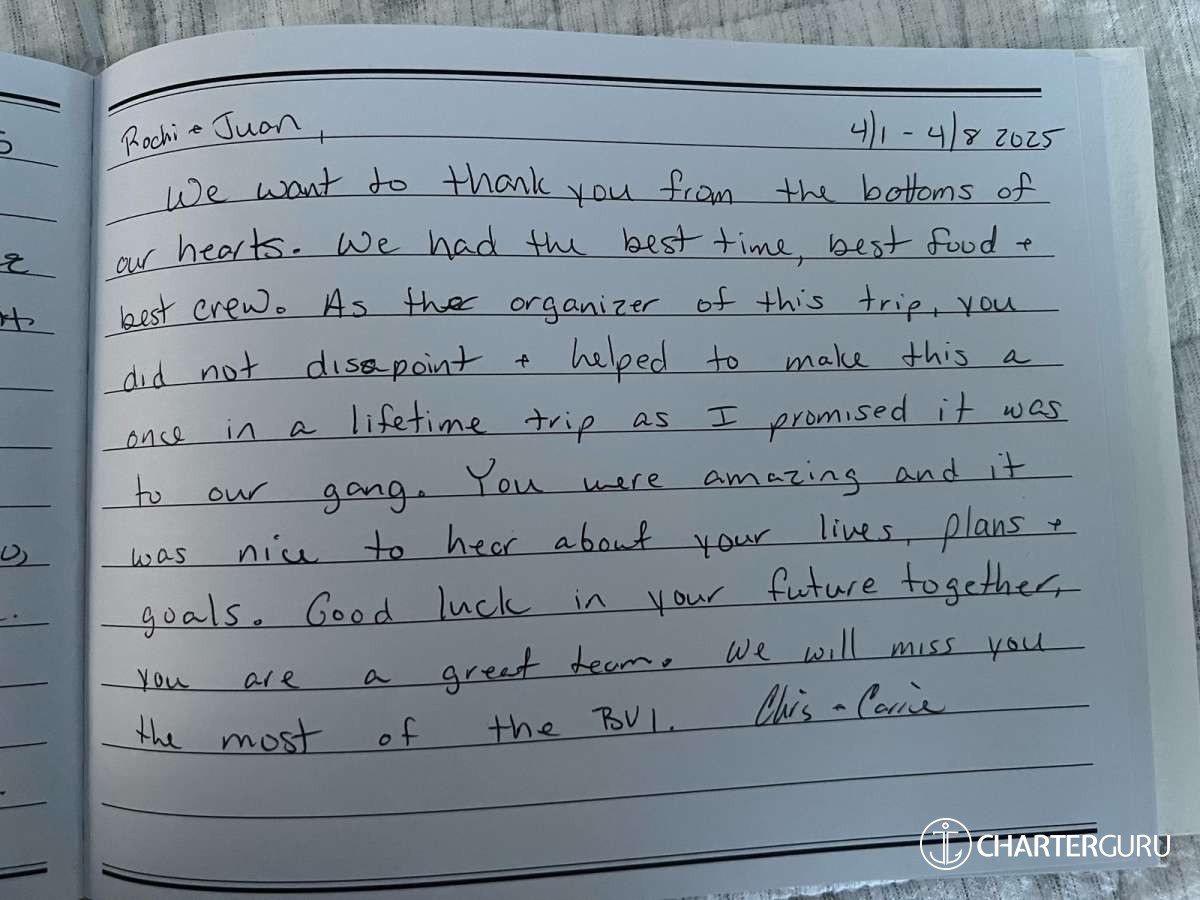 Rochi + Juan, 4/1 - 4/8 2025
We want to thank you from the bottoms of
our hearts. We had the best time, best food +
best crew. As the organizer of this trip, you
did not disapoint + helped to make this a
once in a lifetime trip as I promised it was
to our gang. You were amazing and it
was nice to hear about your lives, plans +
goals. Good luck in your future together,
you are a great team. We will miss you
the most of the BVI. Chis + Carrie
CHARTERGURU